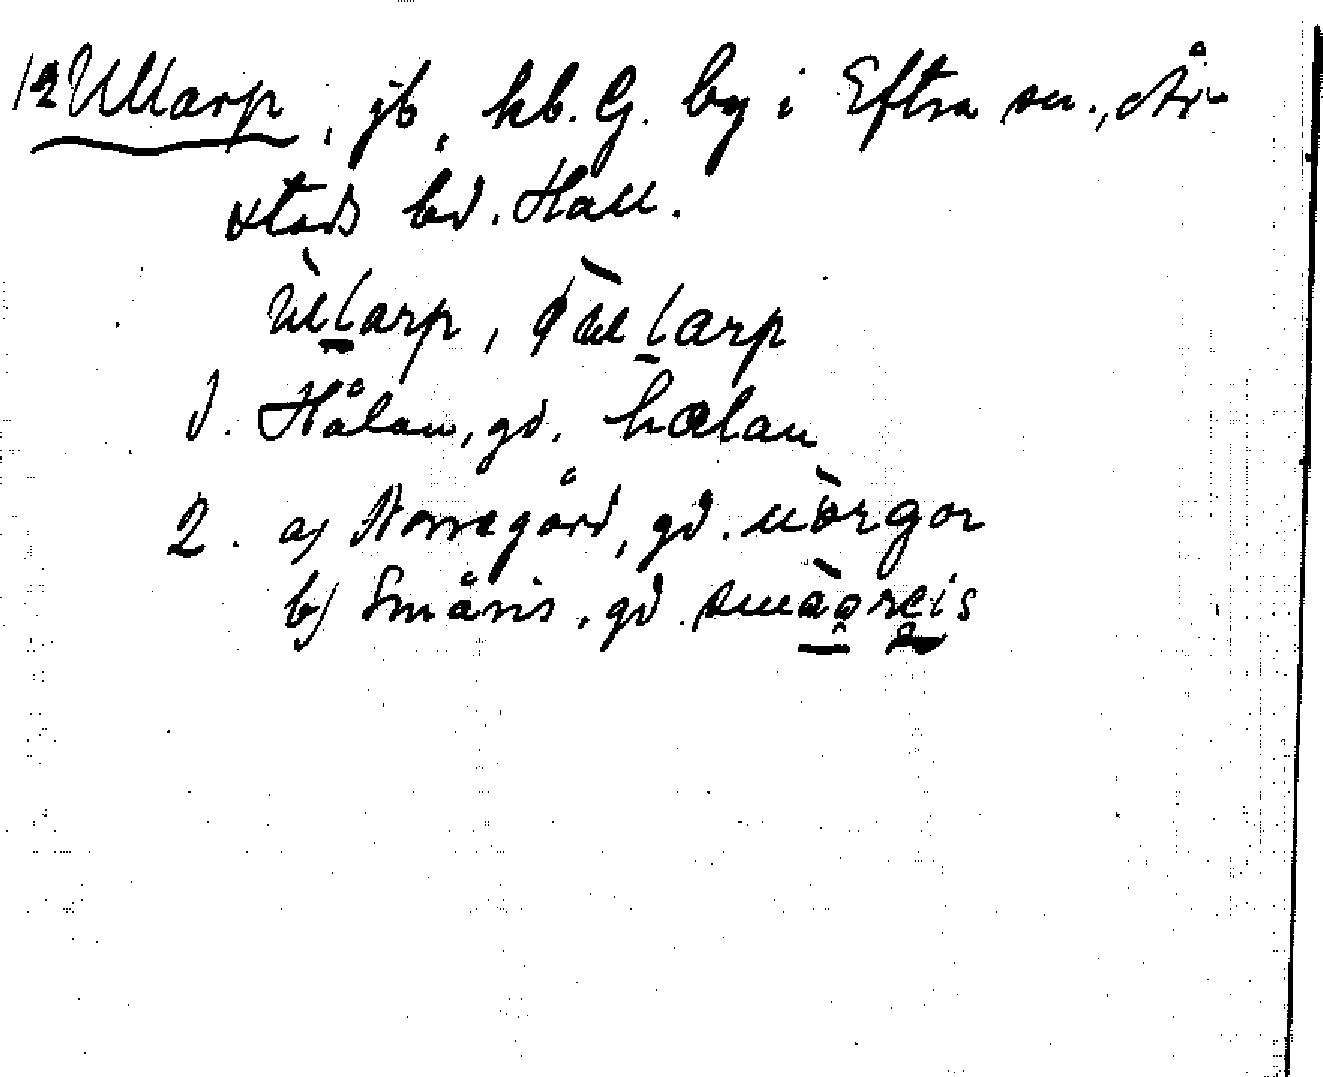 12 Ullarp, jb, kb. G. by i Eftra sn., År-
stads hd. Hall.
ùllarp, ùllarp
1. Hålan, gd. hælan
2. a) Norregård, gd. nòrgor
b) Småris, gd. smàoreis